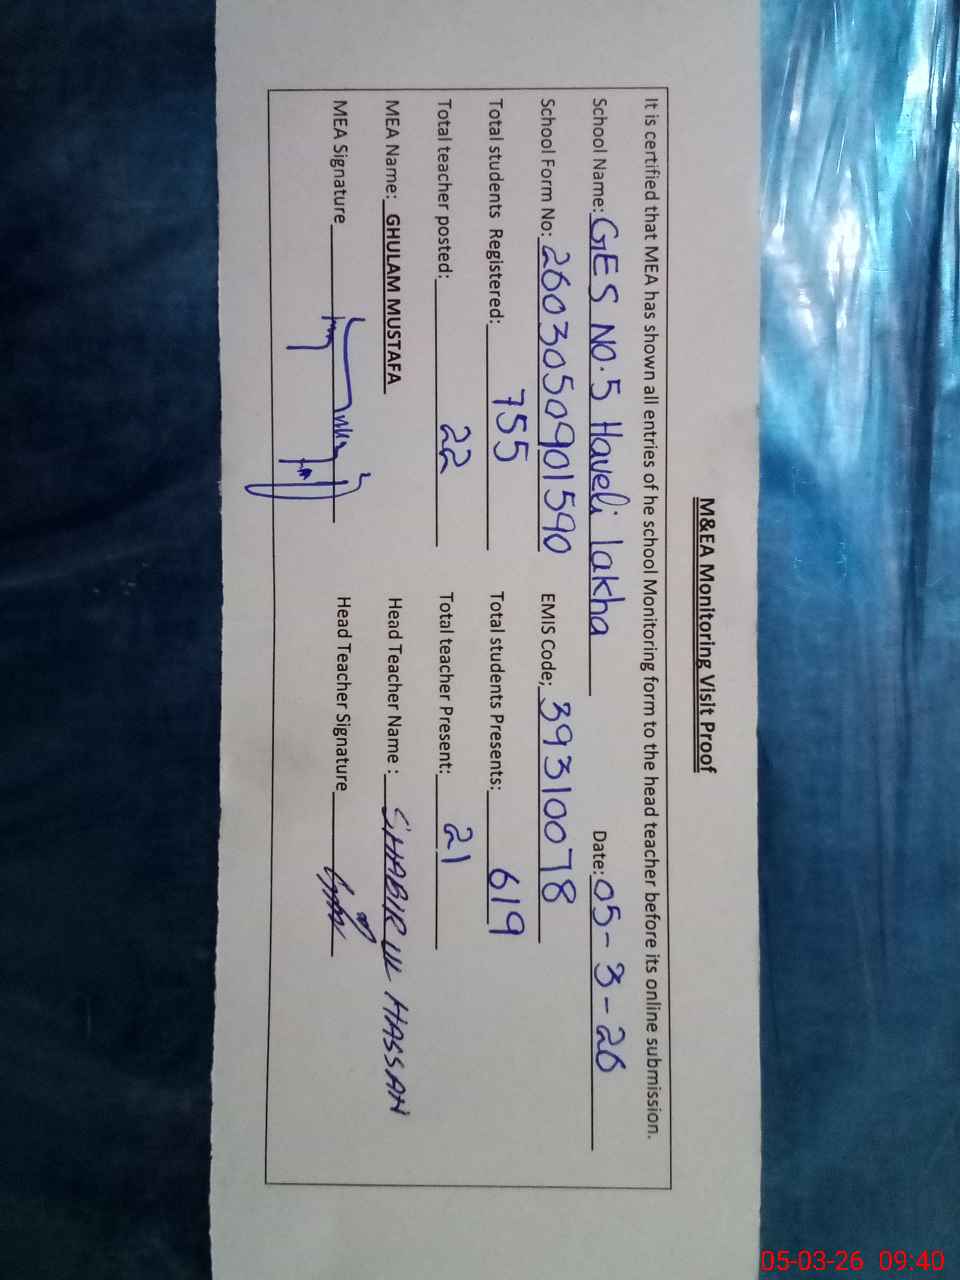 M&EA Monitoring Visit Proof
It is certified that MEA has shown all entries of he school Monitoring form to the head teacher before its online submission.
School Name: GES NO.5 Haveli lakha Date: 05-3-26
School Form No: 2603050901590 EMIS Code; 39310078
Total students Registered: 755 Total students Presents: 619
Total teacher posted: 22 Total teacher Present: 21
MEA Name: GHULAM MUSTAFA Head Teacher Name : SHABIR UL HASSAN
MEA Signature Head Teacher Signature
05-03-26 09:40